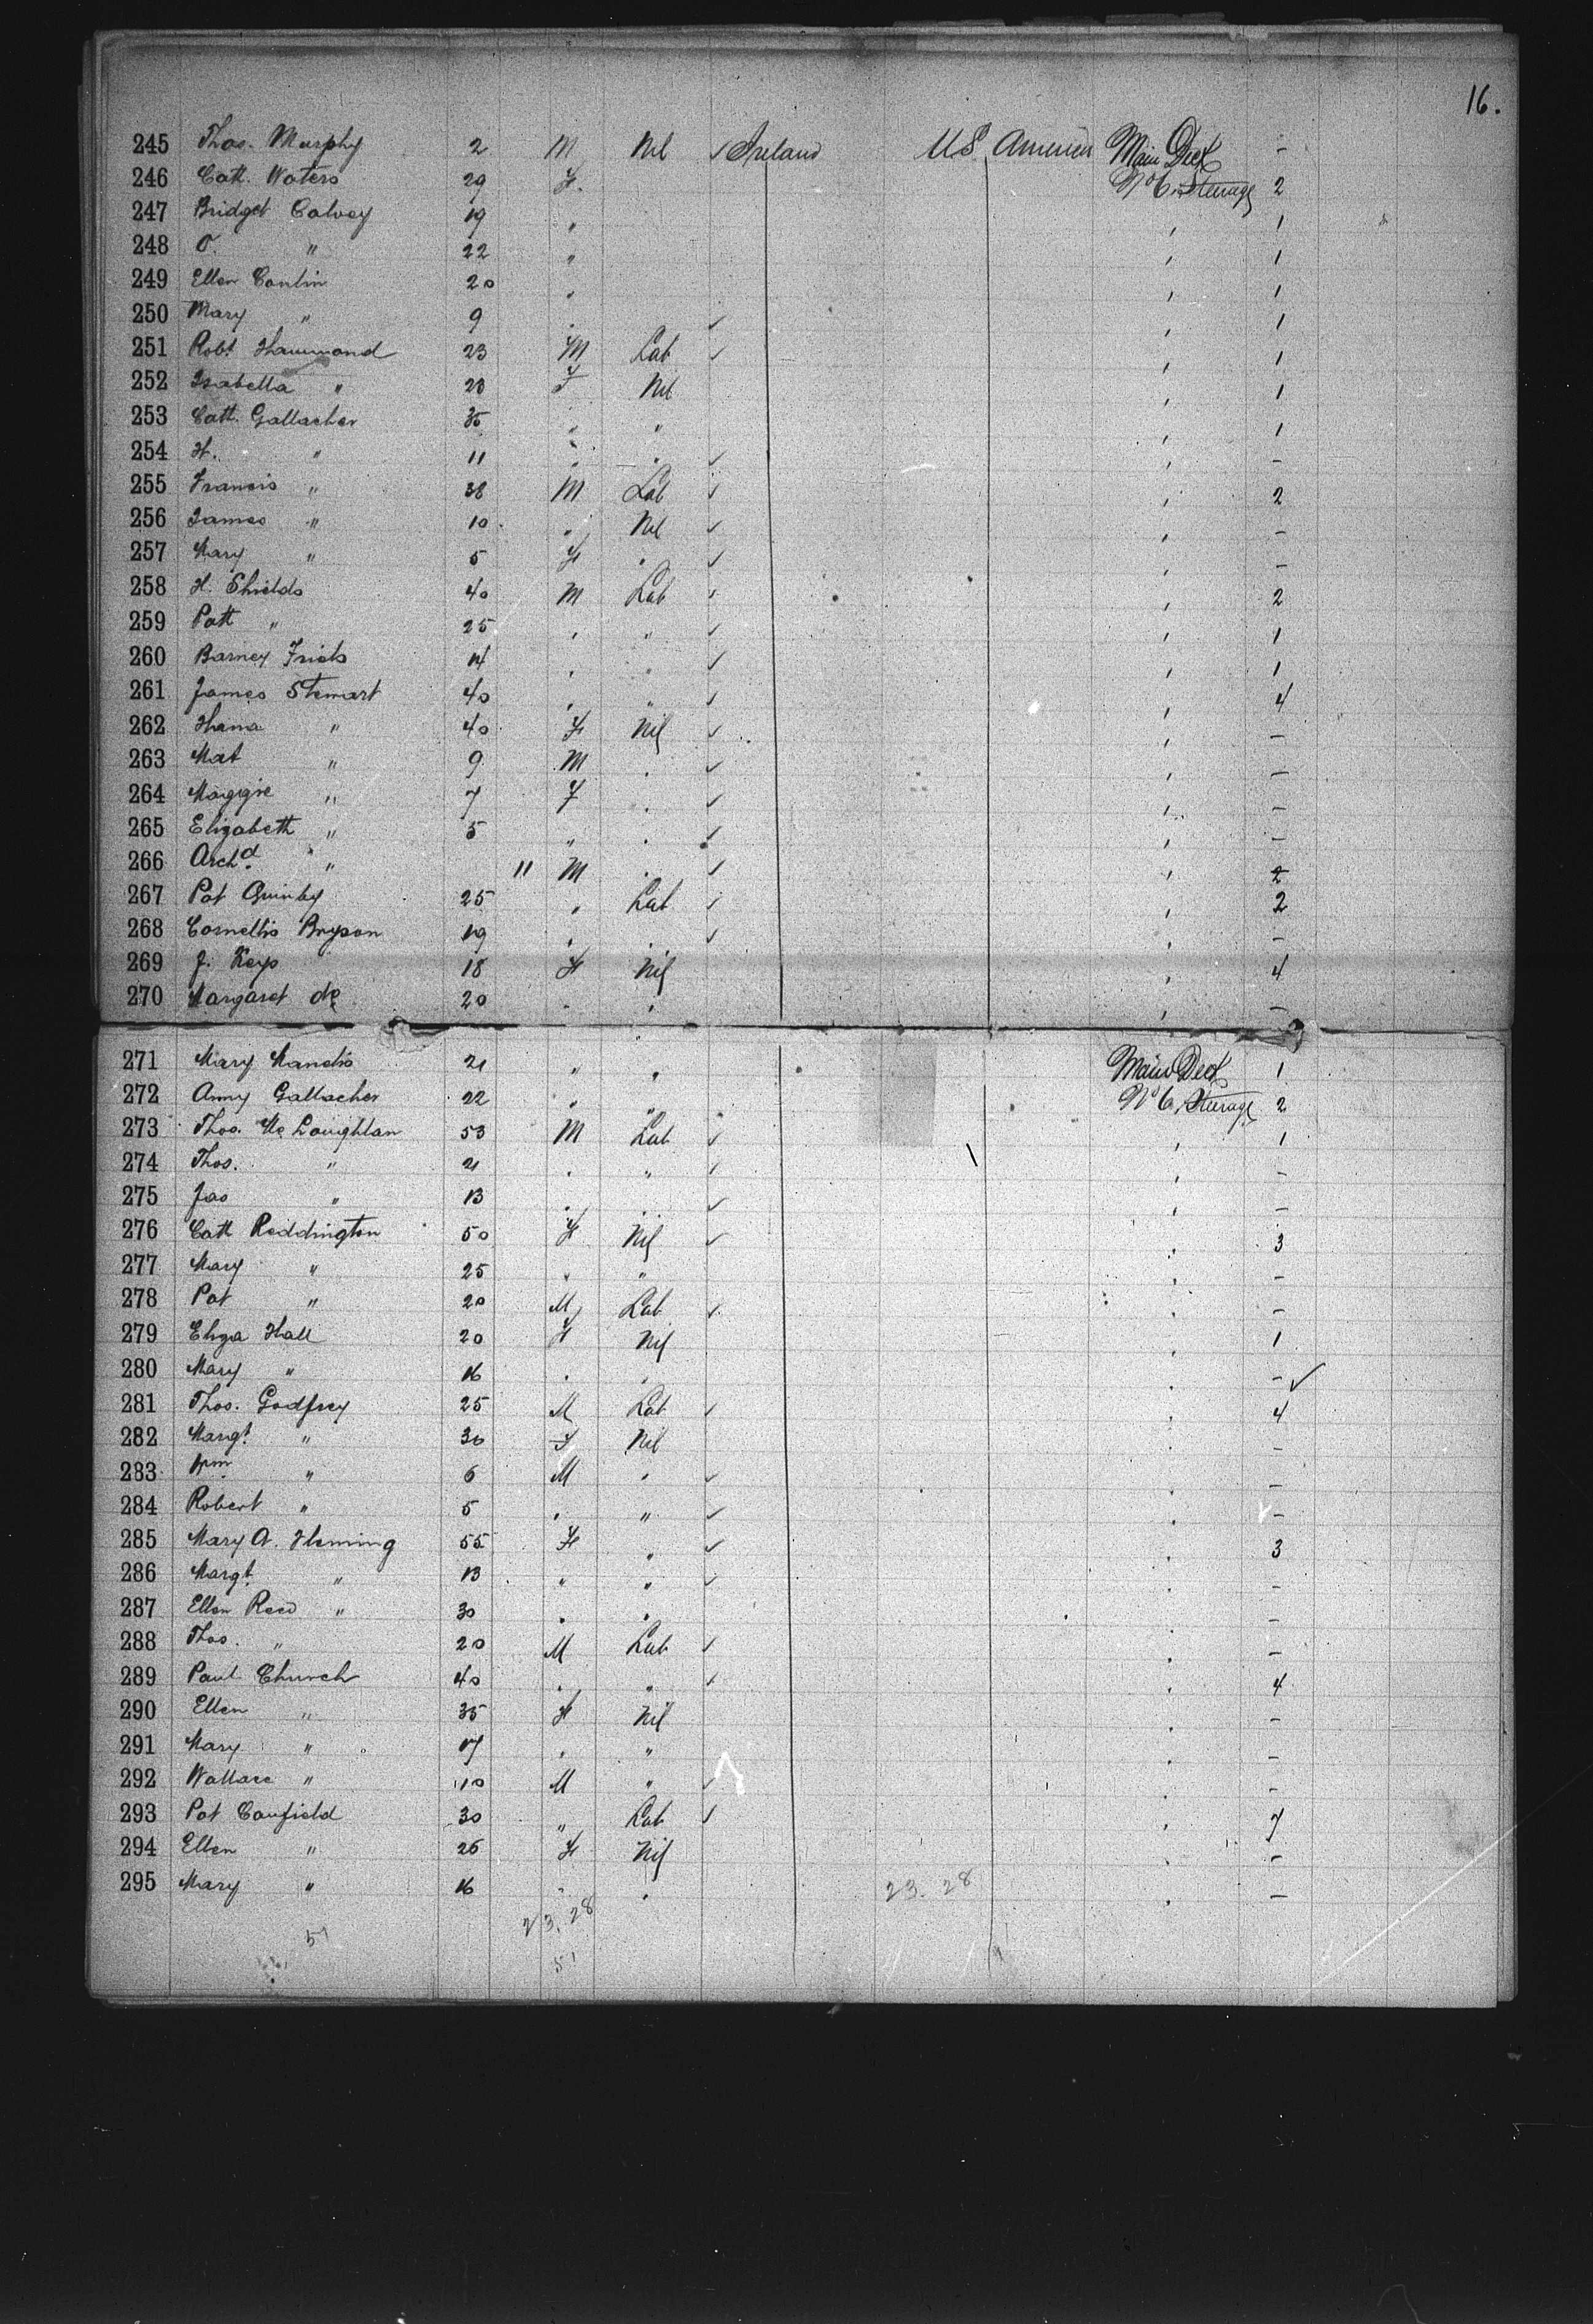 16.
245 Thos. Murphy 2 M Nil ✓ Ireland U.S. America Main Deck -
246 Cath. Waters 29 F. No 6. Steerage 2
247 Bridget Calvey 19 " , 1
248 O. " 22 " , 1
249 Ellen Conlin 20 " , 1
250 Mary " 9 . ✓ , 1
251 Robt Hammond 23 M Lab ✓ , 1
252 Isabella " 23 F Nil , 1
253 Cath. Gallacher 35 " " , 1
254 H. " 11 . . ✓ , -
255 Francis " 38 M Lab ✓ , 2
256 James " 10 " Nil ✓ , -
257 Mary " 5 F . ✓ , -
258 H. Shields 40 M Lab ✓ , 2
259 Patt " 25 , " ✓ , 1
260 Barney 14 , " ✓ , 1
261 James Stewart 40 , " ✓ , 4
262 " 40 F Nil ✓ , -
263 Mat " 9 M . ✓ , -
264 Maggie " 7 F . ✓ , -
265 Elizabeth " 5 " . ✓ , -
266 Archd. " 11 M . ✓ , 2
267 Pat Quinby 25 " Lab ✓ , 2
268 Bryson 19 . . ✓ , -
269 J. Keys 18 F Nil , 4
270 Margaret do 20 . . , -
271 Mary 21 " " Main Deck 1
272 Anny Gallacher 22 " " No 6. Steerage 2
273 Thos. Mc Loughlan 53 M Lab ✓ , 1
274 Thos. " 21 . " ✓ , -
275 Jas " 13 . . ✓ , -
276 Cath Reddington 50 F Nil ✓ , 3
277 Mary " 25 " " , -
278 Pat " 20 M Lab ✓ , -
279 Eliza Hall 20 F Nil , 1
280 Mary " 16 . . , - ✓
281 Thos. Godfrey 25 M Lab ✓ , 4
282 Margt. " 30 F Nil , -
283 Wm " 6 M " ✓ , -
284 Robert " 5 . " ✓ , -
285 Mary A. Fleming 55 F " ✓ , 3
286 Margt. " 13 " " ✓ , -
287 Ellen Reed " 30 . . , -
288 Thos. " 20 M Lab ✓ , -
289 Paul Church 40 . " ✓ , 4
290 Ellen " 35 F Nil , -
291 Mary " 17 . " , -
292 Wallace " 10 M " ✓ , -
293 Pat Caufield 30 " Lab ✓ , 7
294 Ellen " 26 F Nil , -
295 Mary " 16 . . 23. 28 , -
51 23. 28
51